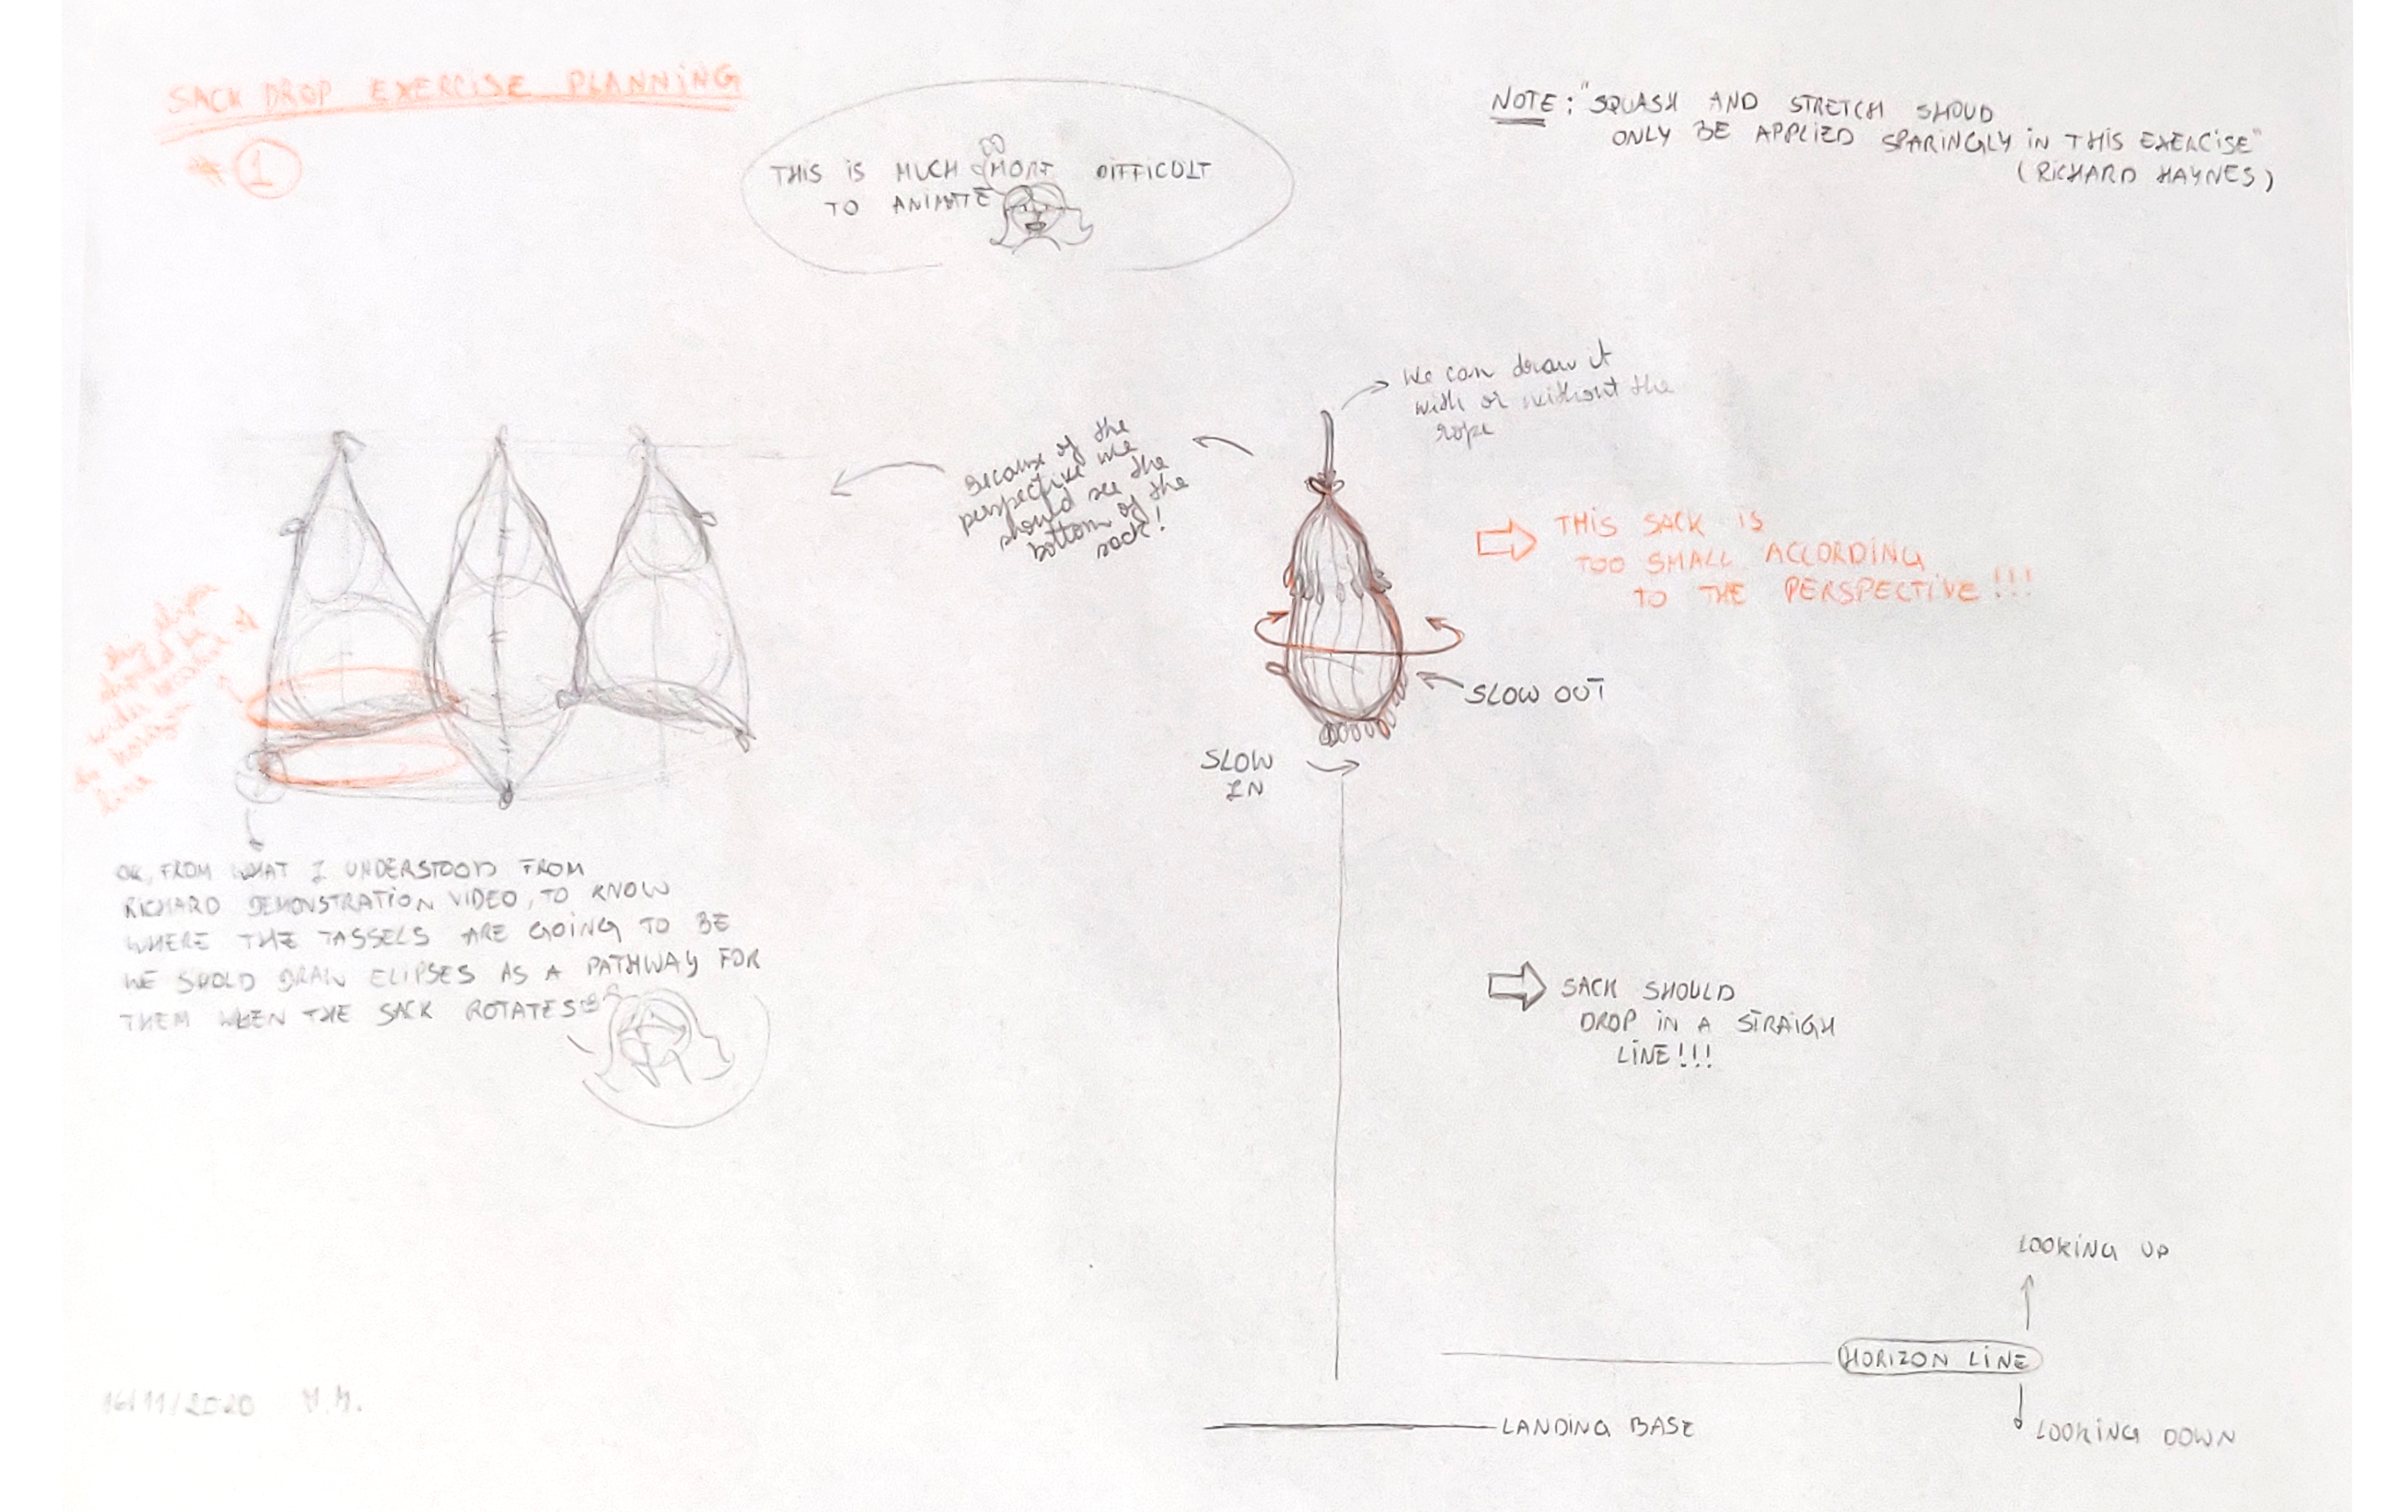 SACK DROP EXERCISE PLANNING
* 1
THIS IS MUCH MORE DIFFICULT
TO ANIMATE
NOTE: "SQUASH AND STRETCH SHOUD
ONLY BE APPLIED SPARINGLY IN THIS EXERCISE"
(RICHARD HAYNES)
We can draw it
with or without the
rope
Because of the
perspective we
should see the
bottom of the
sack!
THIS SACK IS
TOO SMALL ACCORDING
TO THE PERSPECTIVE!!!
SLOW OUT
SLOW
IN
should be
horizon
line
OK, FROM WHAT I UNDERSTOOD FROM
RICHARD DEMONSTRATION VIDEO, TO KNOW
WHERE THE TASSELS ARE GOING TO BE
WE SHOLD DRAW ELIPSES AS A PATHWAY FOR
THEM WHEN THE SACK ROTATES
SACK SHOULD
DROP IN A STRAIGH
LINE!!!
LOOKING UP
HORIZON LINE
LOOKING DOWN
LANDING BASE
16/11/2020